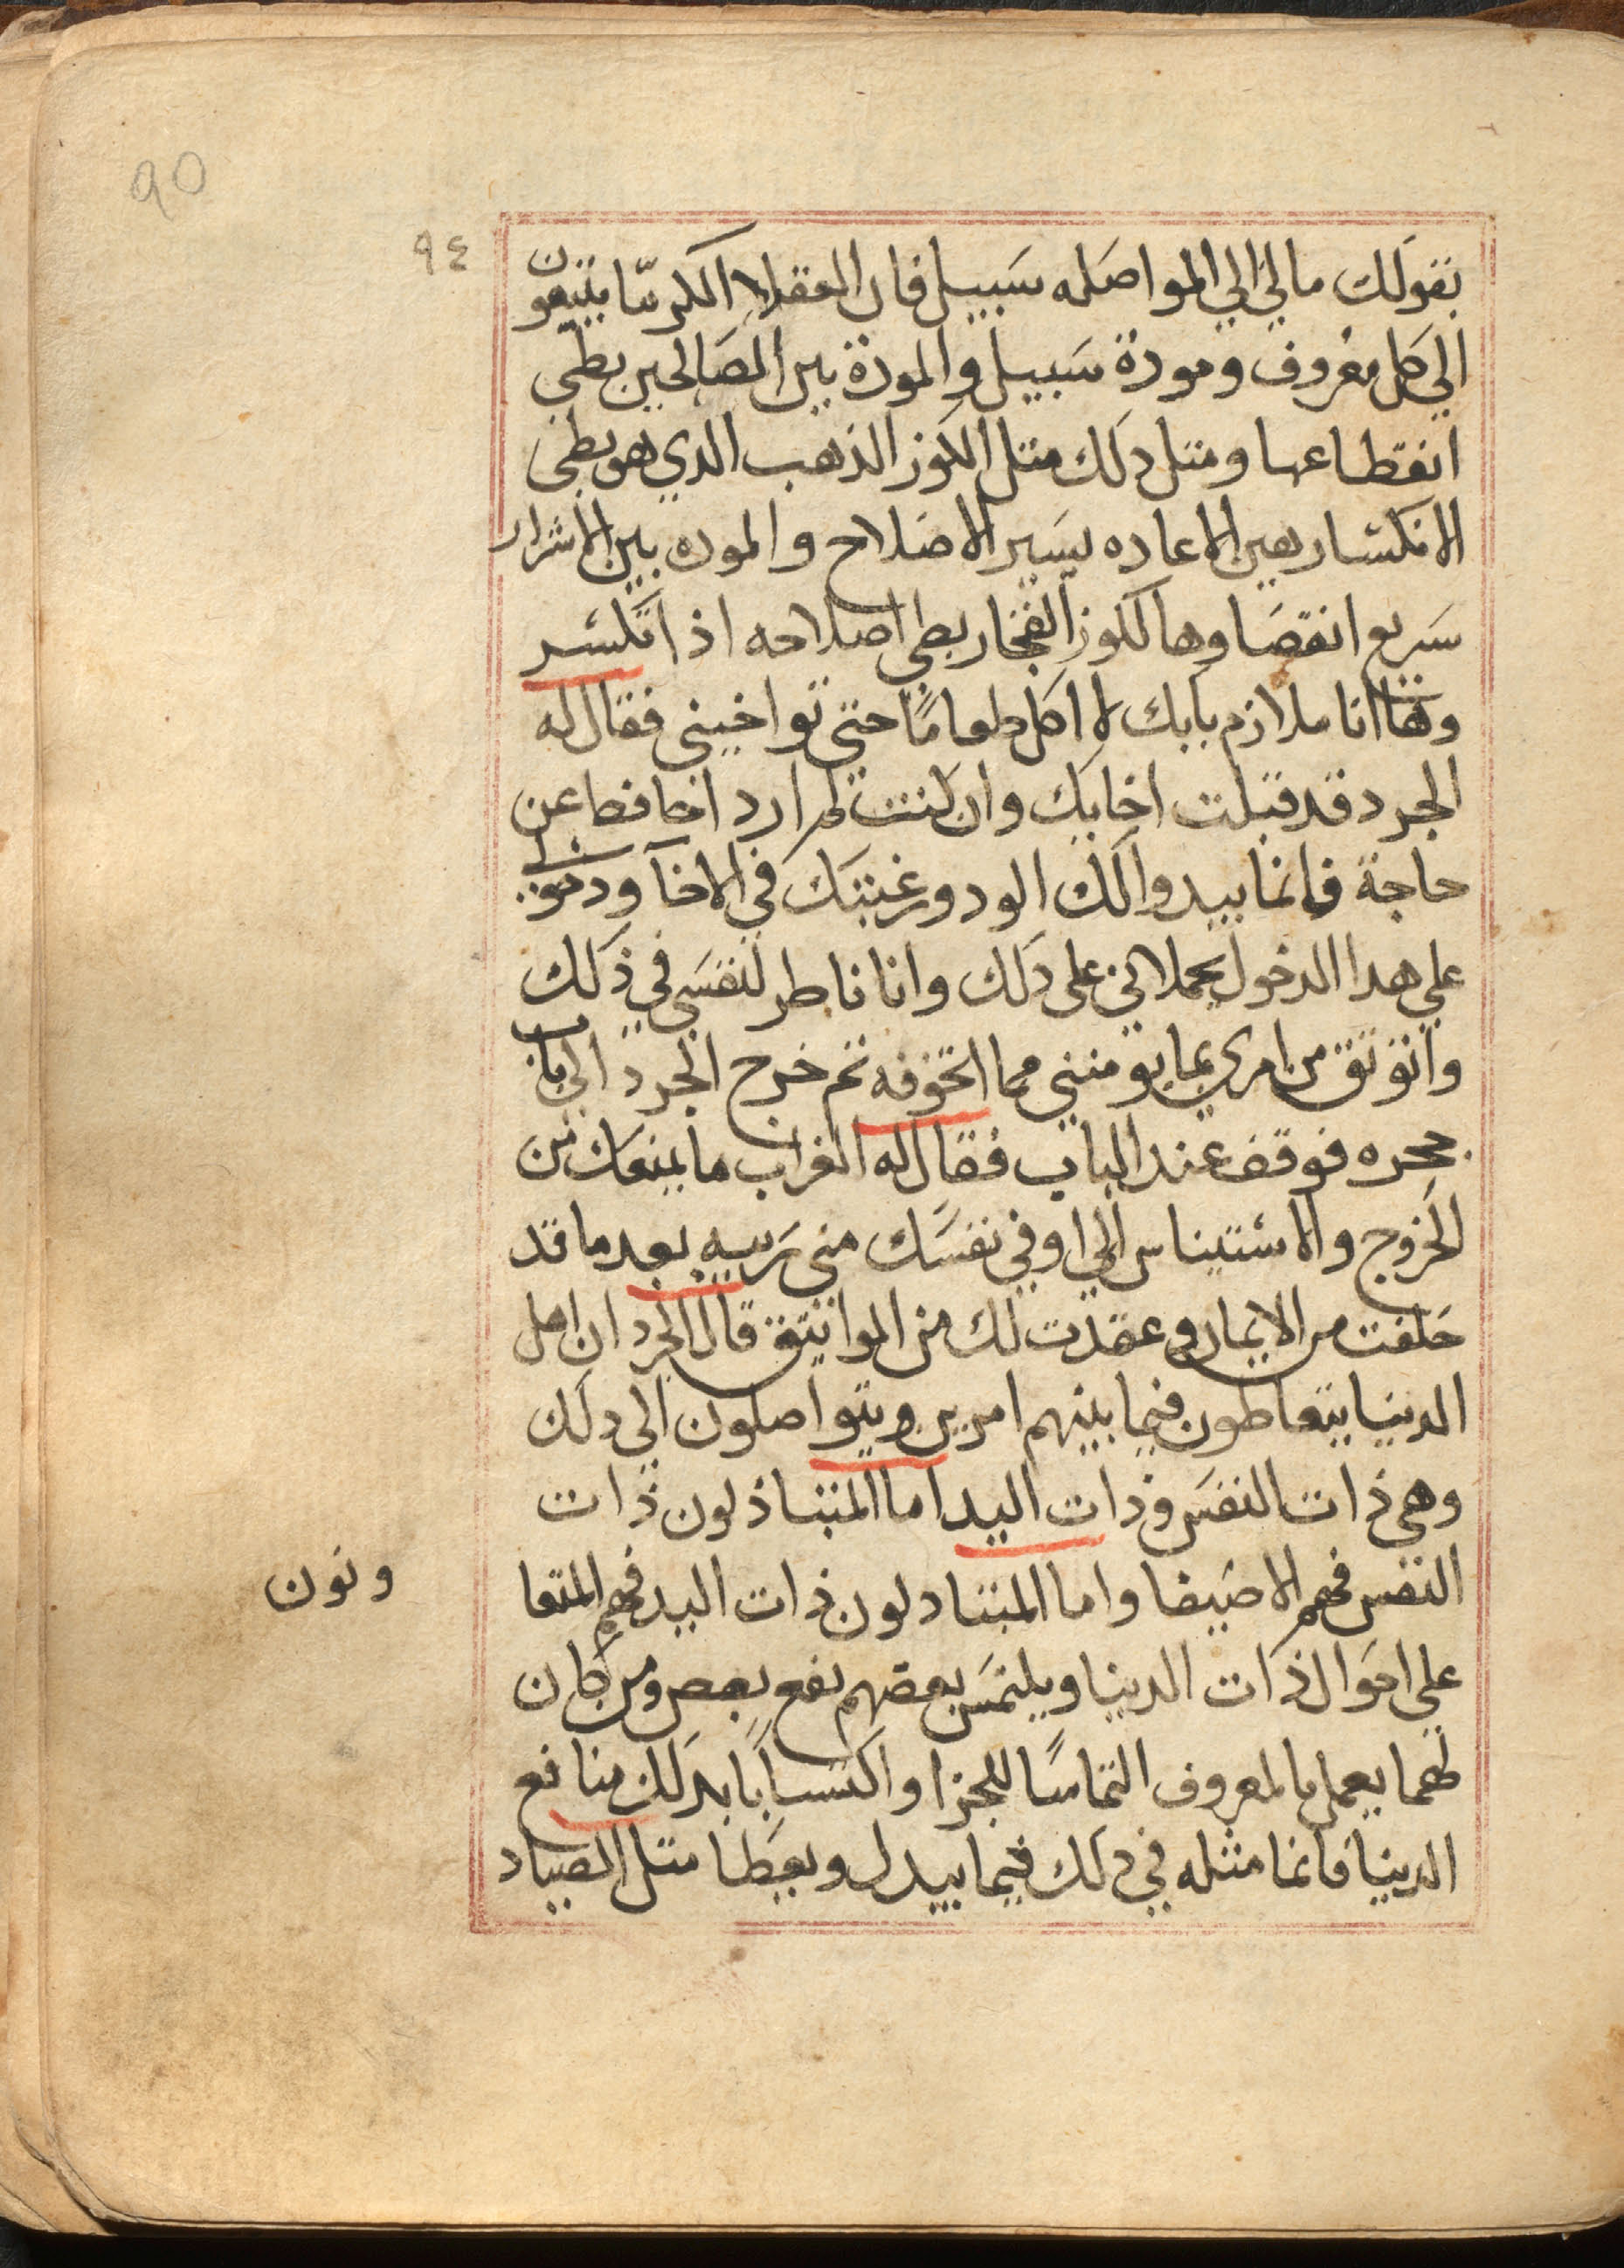 90
٩٤
بقولك مالي الي المواصله سبيل فان العقلا الكرما يتبعون
الي كل معروف ومودة سبيل والمودة بين الصالحين بطي
انقطاعها ومتل دلك متل الكوز الذهب الدي هو بطي
الانكسار هين الاعاده يسير الاصلاح والموده بين الاشرار
سريع انقصاوها ككوز الفخار بطي اصلاحه اذا انكسر
وها انا ملازم بابك لا اكل طعامًا حتي تواخيني فقال له
الجرد قد قبلت اخايك وان كنت لم ارد اخا قط عن
حاجة فانما بيدوا لك الود ورغبتك في الاخآ
علي هدا الدخول يحملاني علي دلك وانا ناطر لنفسي في ذلك
واتوتق من امري بما يومنني مما اتخوفه تم خرج الجرد الي باب
جحره فوقف عند الباب فقال له الغراب ما يمنعك من
الخروج والاستيناس الي او في نفسك مني ريبه بعد ما قد
حلفت من الايمان وعقدت لك من المواتيق قال الجرد ان اهل
الدنيا يتعاطون فيما بينهم امرين ويتواصلون الي دلك
وهي ذات النفس وذات اليد اما المتباذلون ذات
النفس فهم الاصيفا واما المتبادلون ذات اليد فهم المتعا
ونون
علي احوال ذات الدنيا ويلتمس بعضهم نفع بعص ومن كان
يعمل بالمعروف التماسًا للجزا واكتسابًا بدلك منافع
الدنيا فانما مثله في دلك فيما يبدل ويعطا متل الصياد